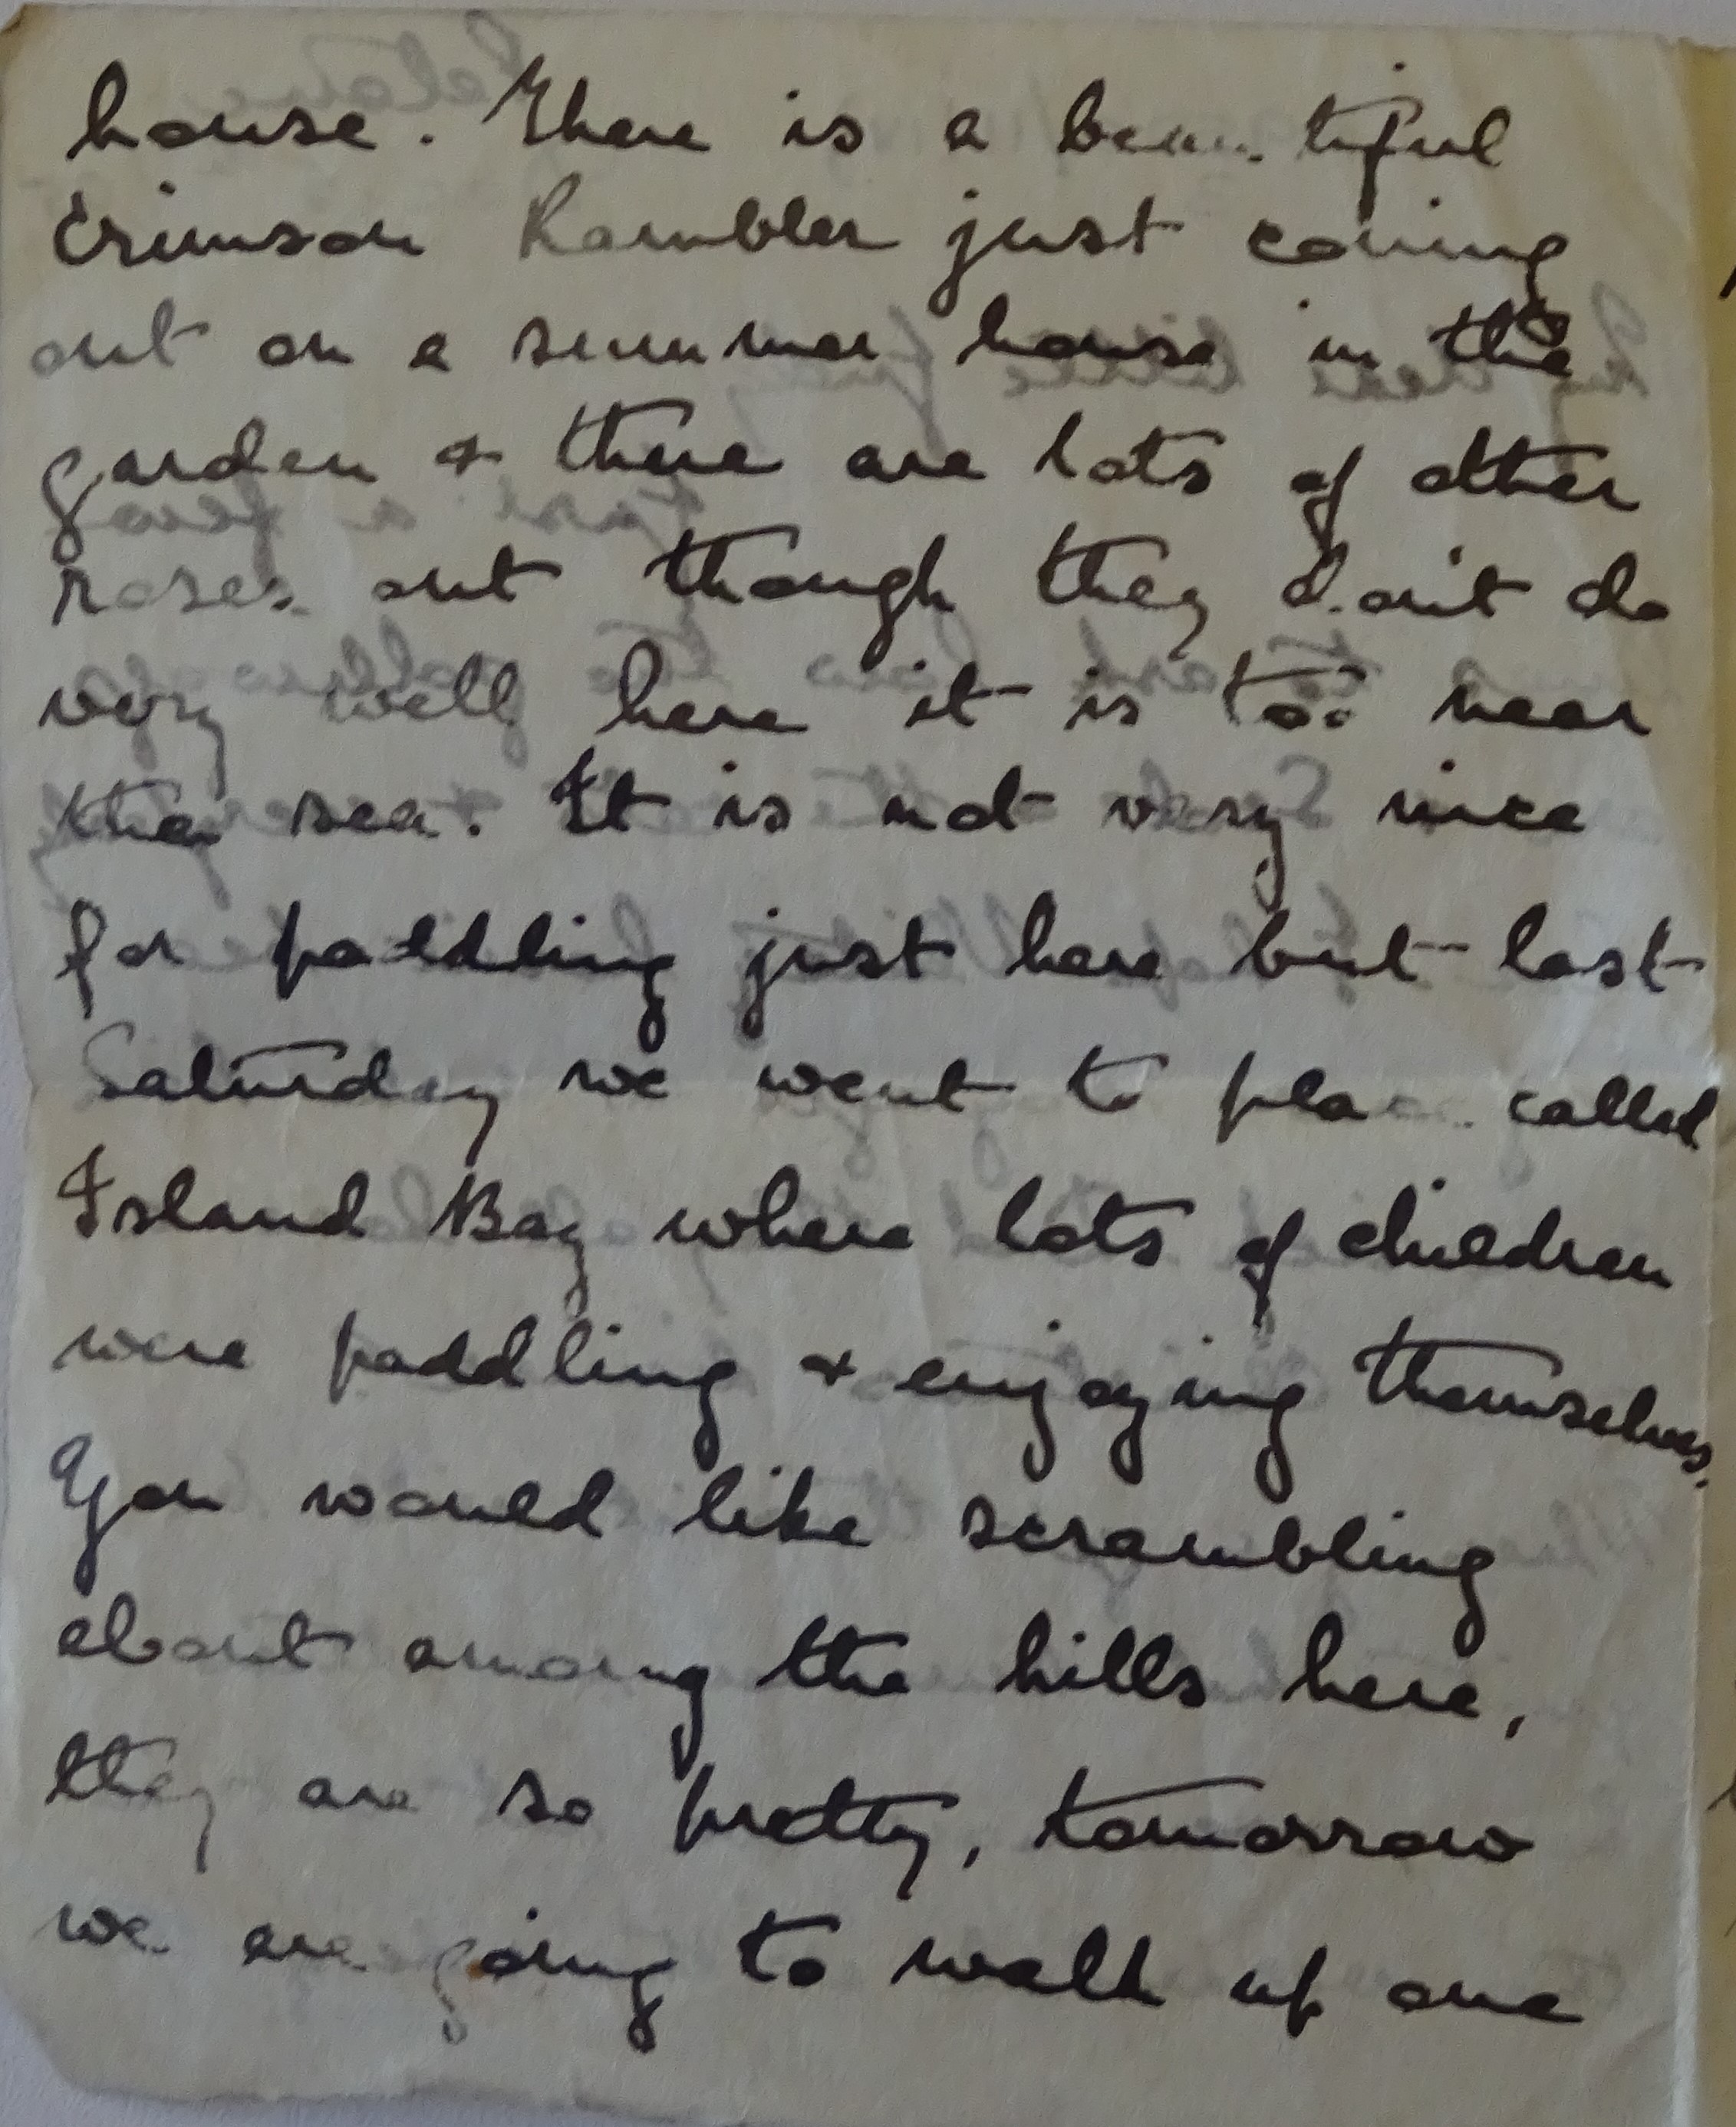 house. There is a beautiful
Crimson Rambler just coming
out on a summer house in the
garden & there are lots of other
roses out though they don't do
very well here it is too near
the sea. It is not very nice
for paddling just here but last
Saturday we went to place called
Island Bay where lots of children
were paddling & enjoying themselves.
You would like scrambling
about among the hills here,
they are so pretty, tomorrow
we are going to walk up one